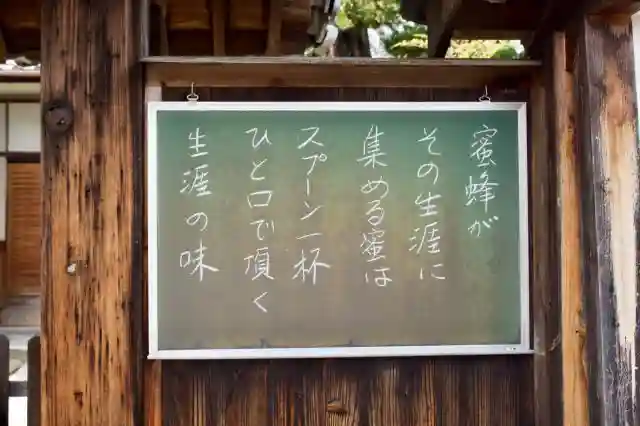 蜜蜂が
その生涯に
集める蜜は
スプーン一杯
ひと口で頂く
生涯の味